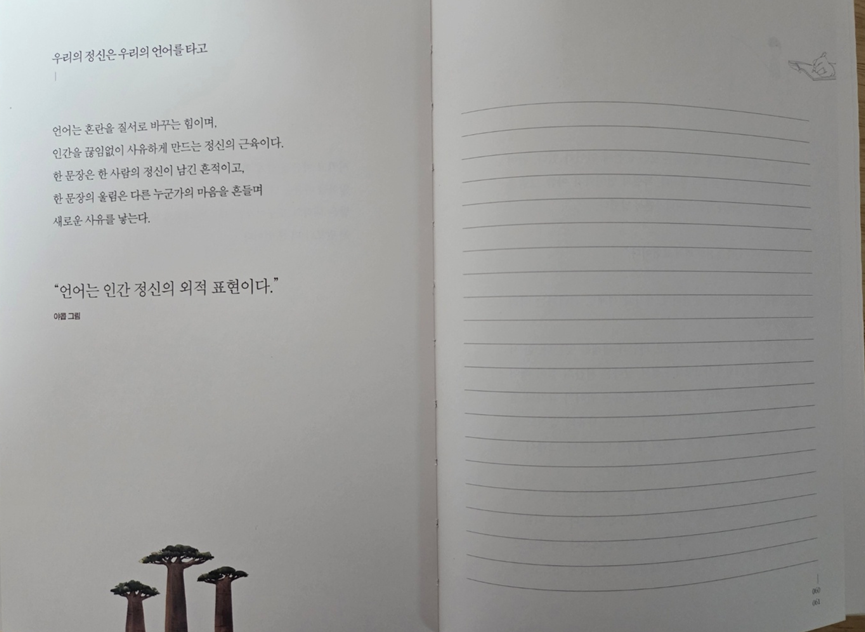 우리의 정신은 우리의 언어를 타고
언어는 혼란을 질서로 바꾸는 힘이며,
인간을 끊임없이 사유하게 만드는 정신의 근육이다.
한 문장은 한 사람의 정신이 남긴 흔적이고,
한 문장의 울림은 다른 누군가의 마음을 흔들며
새로운 사유를 낳는다.
“언어는 인간 정신의 외적 표현이다.”
야콥 그림